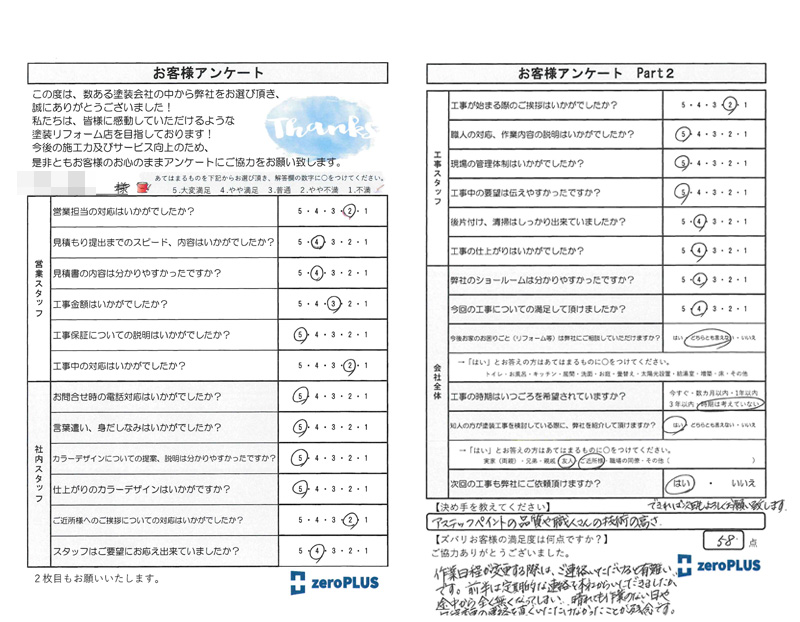 お客様アンケート
この度は、数ある塗装会社の中から弊社をお選び頂き、
誠にありがとうございました！
私たちは、皆様に感動していただけるような
塗装リフォーム店を目指しております！
今後の施工力及びサービス向上のため、
是非ともお客様のお心のままアンケートにご協力をお願い致します。
Thanks
あてはまるものを下記からお選び頂き、解答欄の数字に○をつけてください。
様 5.大変満足 4.やや満足 3.普通 2.やや不満 1.不満
営業スタッフ
営業担当の対応はいかがでしたか？ 5・4・3・2・1
見積もり提出までのスピード、内容はいかがでしたか？ 5・4・3・2・1
見積書の内容は分かりやすかったですか？ 5・4・3・2・1
工事金額はいかがでしたか？ 5・4・3・2・1
工事保証についての説明はいかがでしたか？ 5・4・3・2・1
工事中の対応はいかがでしたか？ 5・4・3・2・1
社内スタッフ
お問合せ時の電話対応はいかがでしたか？ 5・4・3・2・1
言葉遣い、身だしなみはいかがでしたか？ 5・4・3・2・1
カラーデザインについての提案、説明は分かりやすかったですか？ 5・4・3・2・1
仕上がりのカラーデザインはいかがですか？ 5・4・3・2・1
ご近所様へのご挨拶についての対応はいかがでしたか？ 5・4・3・2・1
スタッフはご要望にお応え出来ていましたか？ 5・4・3・2・1
2枚目もお願いいたします。
zeroPLUS
お客様アンケート Part2
工事スタッフ
工事が始まる際のご挨拶はいかがでしたか？ 5・4・3・2・1
職人の対応、作業内容の説明はいかがでしたか？ 5・4・3・2・1
現場の管理体制はいかがでしたか？ 5・4・3・2・1
工事中の要望は伝えやすかったですか？ 5・4・3・2・1
後片付け、清掃はしっかり出来ていましたか？ 5・4・3・2・1
工事の仕上がりはいかがでしたか？ 5・4・3・2・1
会社全体
弊社のショールームは分かりやすかったですか？ 5・4・3・2・1
今回の工事についての満足して頂けましたか？ 5・4・3・2・1
今後お家のお困りごと（リフォーム等）は弊社にご相談していただけますか？ はい・どちらとも言えない・いいえ
→「はい」とお答えの方はあてはまるものに○をつけてください。
トイレ・お風呂・キッチン・居間・洗面・お庭・畳替え・太陽光設置・給湯室・増築・床・その他
工事の時期はいつごろを希望されていますか？ 今すぐ・数カ月以内・1年以内
3年以内・時期は考えていない
知人の方が塗装工事を検討している際に、弊社を紹介して頂けますか？ はい・どちらとも言えない・いいえ
→「はい」とお答えの方はあてはまるものに○をつけてください。
実家（両親）・兄弟・親戚・友人・ご近所様・職場の同僚・その他（ ）
次回の工事も弊社にご依頼頂けますか？ はい ・ いいえ
【決め手を教えてください】 できれば次回よろしくお願い致します
アステックペイントの品質や職人さんの技術の高さ
【ズバリお客様の満足度は何点ですか？】 58 点
ご協力ありがとうございました。
zeroPLUS
作業日程が変更する際は、ご連絡いただけると有難い
です。前半は定期的な連絡を いただきましたが、
途中から全く無くなってしまい、晴れでも作業のない日や
いただけなかったことが残念です。